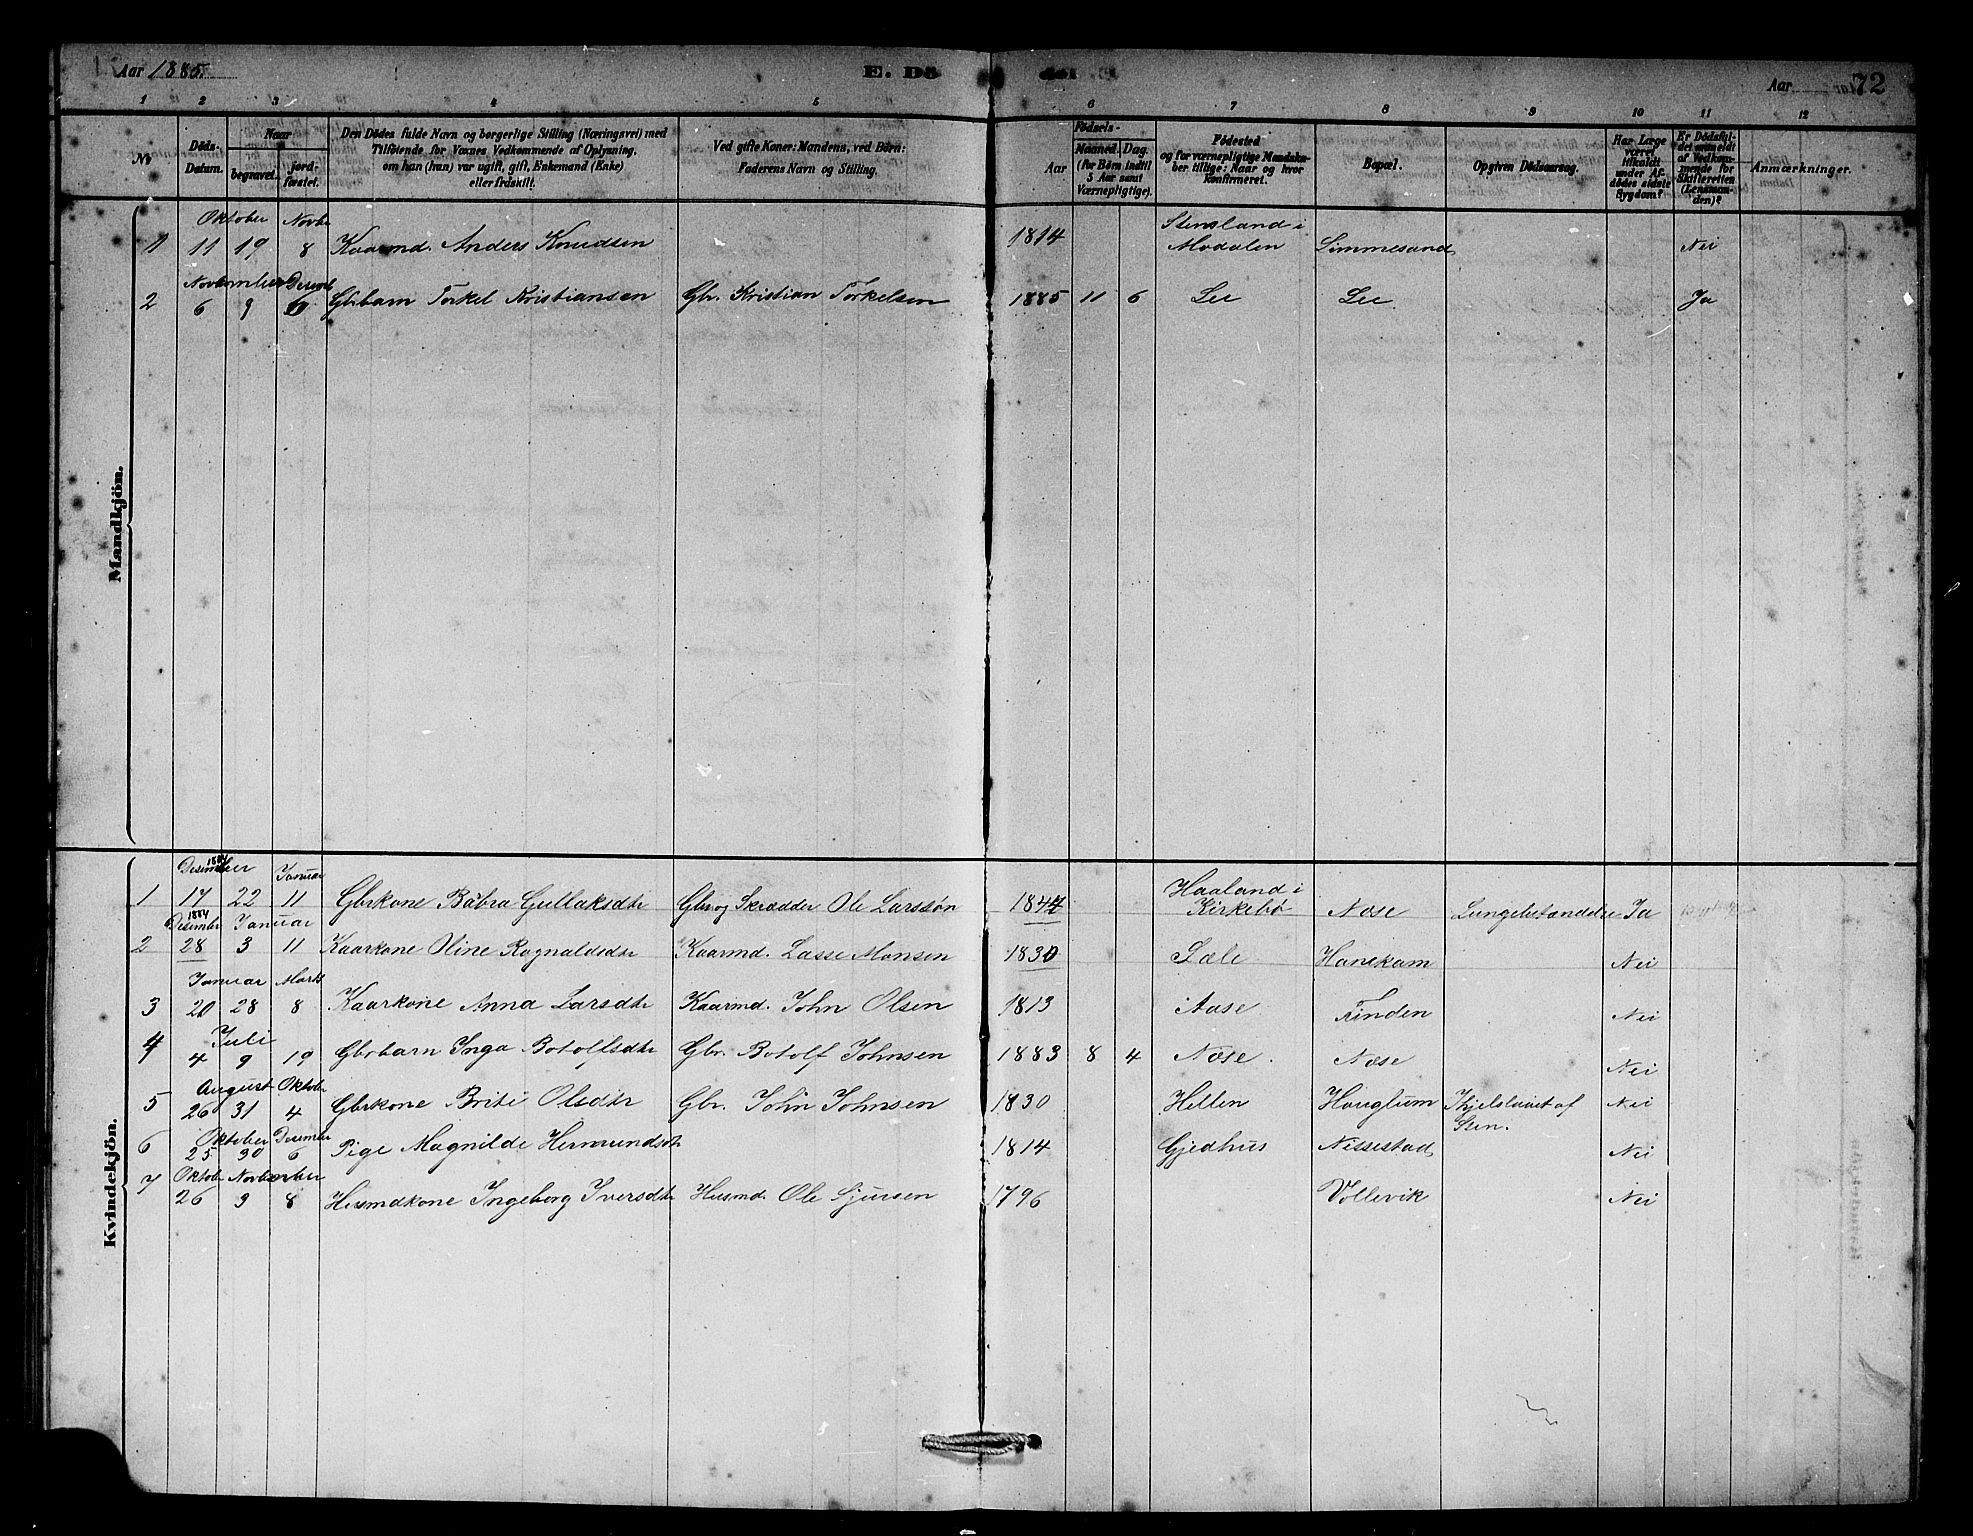 Aar 1885.
E. Dö
del
Aar
72
1 2 3 4 5 6 7 8 9 10 11 12
No
Döds-Datum.
Naar
begravet.
jord-fæstet.
Den Dödes fulde Navn og borgerlige Stilling (Næringsvei) med
Tilföiende for Voxnes Vedkommende af Oplysning,
om han (hun) var ugift, gift, Enkemand (Enke)
eller fraskilt.
Ved gifte Koner: Mandens, ved Börn:
Faderens Navn og Stilling.
Födsels-
Aar
Maaned. Dag.
(for Börn indtil
5 Aar samt
Værnepligtige).
Födested
og for værnepligtige Mandskaber
tillige: Naar og hvor
konfirmeret.
Bopæl.
Opgiven Dödsaarsag.
Har Læge
været
tilkaldt
under Afdödes
sidste
Sygdom?
Er Dödsfaldet
anmeldt
af Vedkommende
for
Skifteretten
(Lensmanden)?
Anmærkninger.
Mandkjön.
Oktober Novbr Stensland i
1 11 19 8 Kaarmd. Anders Knudsen 1814 Modalen Limmesand Nei
November Desembr
2 6 9 Gbrbarn Torkel Kristiansen Gbr. Kristian Torkelsen 1885 11 6 Lee Lee Ja
Kvindekjön.
1884
Desember Januar Haaland i
1 17 22 11 Gbrkone Barbra Gullaksdtr Gbr og Skrædder Ole Larssön 1844 Kirkebö Nese Lungebetændelse Ja
1884
Desember Januar
2 28 3 11 Kaarkone Oline Ragnaldsdtr Kaarmd. Lasse Monsen 1830 Sæle Hanekam Nei
Januar Marts
3 20 28 8 Kaarkone Anna Larsdtr Kaarmd. John Olsen 1813 Aase Finden Nei
Juli
4 4 9 19 Gbrbarn Inga Botolfsdtr Gbr. Botolf Johnsen 1883 8 4 Nese. Nese Nei
August Oktober
5 26 31 4 Gbrkone Brite Olsdtr Gbr. John Johnsen 1830 Hellen Hauglum Ihjelslaaet af Nei
Sten.
Oktober Desember
6 25 30 6 Pige Magnilde Hermundsdtr 1814 Gjedhus Nissestad Nei
Oktobr November
7 26 9 8 Husmdkone Ingeborg Iversdtr Husmd. Ole Sjursen 1796 Vollevik Nei